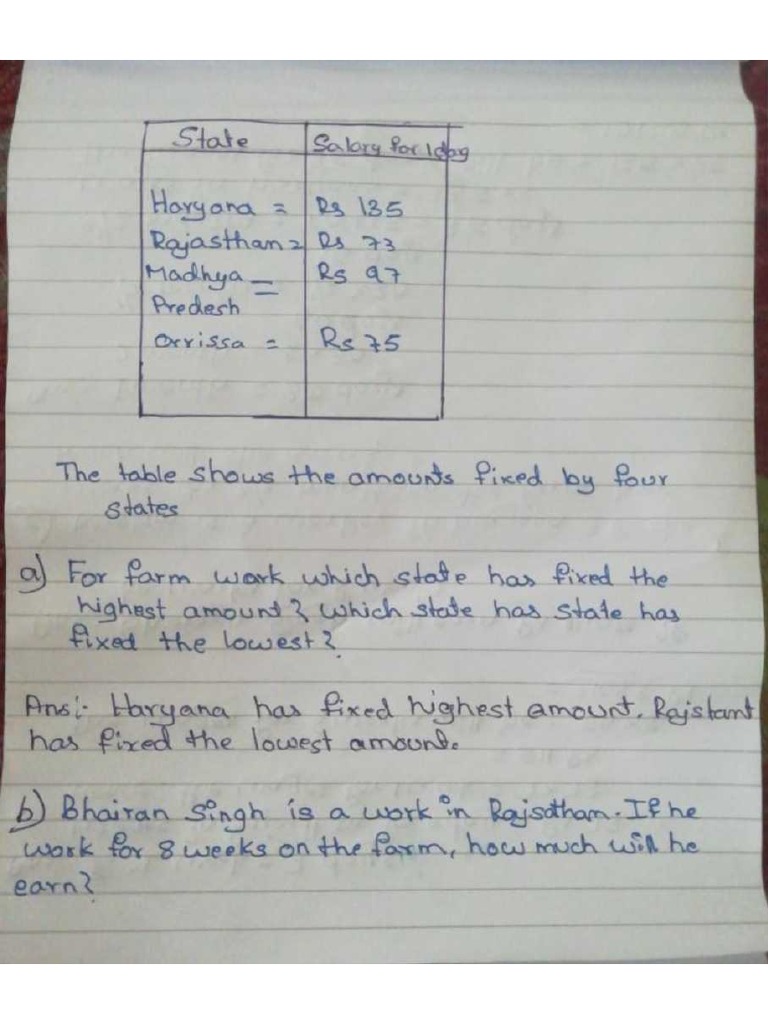 State Salary for 1 day
Haryana = Rs 135
Rajasthan = Rs 73
Madhya = Rs 97
Predesh
Orrissa = Rs 75
The table shows the amounts fixed by four
states
a) For farm work which state has fixed the
highest amount? which state has state has
fixed the lowest?
Ans:- Haryana has fixed highest amount. Rajstant
has fixed the lowest amount.
b) Bhairan Singh is a work in Rajsatham. If he
work for 8 weeks on the farm, how much will he
earn?